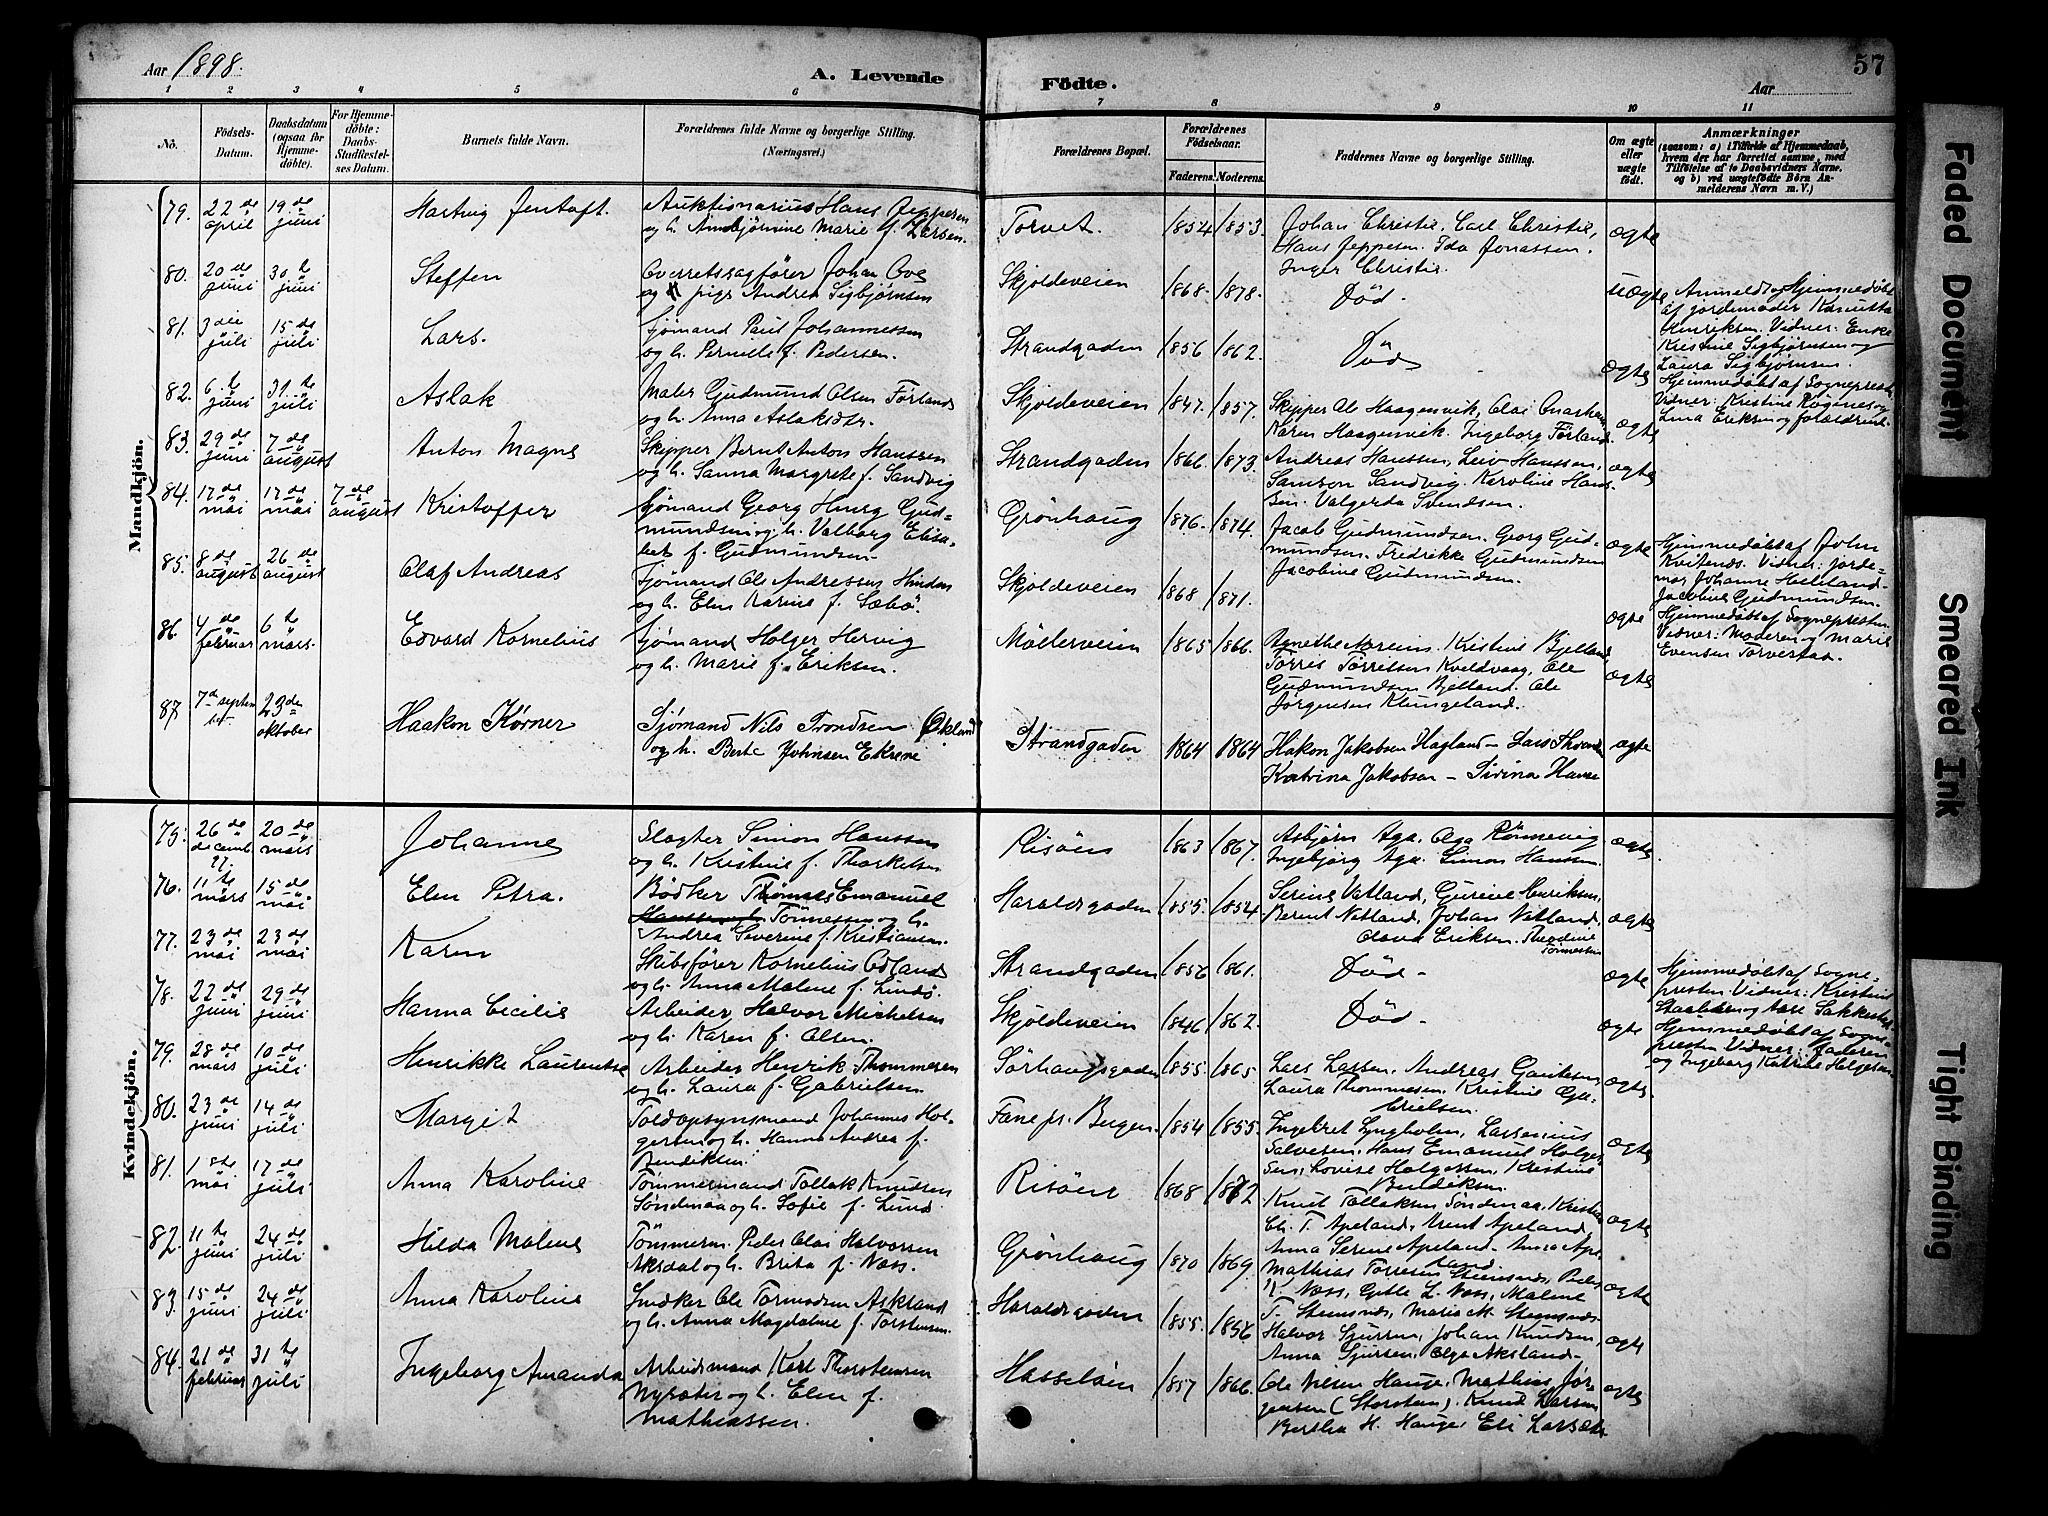 Aar 1898.
A. Levende
Födte.
Aar
57
1 2 3 4 5 6 7 8 9 10 11
No.
Födsels-Datum.
Daabsdatum (ogsaa för Hjemmedöbte).
For Hjemmedöbte: Daabs-Stadfæstelses Datum.
Barnets fulde Navn.
Forældrenes fulde Navne og borgerlige Stilling. (Næringsvei.)
Forældrenes Bopæl.
Forældrenes Födselsaar. Faderens. Moderens.
Faddernes Navne og borgerlige Stilling.
Om ægte eller uægte født.
Anmærkninger
(saasom: a) i Tilfælde af Hjemmedaab, hvem der har forrettet samme, med Tilföielse af to Daabsvidners Navne, og b) ved uægtefödte Börn Anmelderens Navn m. V.)
Mandkjön.
79. 22de april 19de juni Hartvig Jentoft. Auktionarius Hans Jeppesen og h. Marie f. Larsen. Torvet. 1854 1853. Johan Christie, Carl Christie, Hans Jeppesen. Ida Jonassen. Inger Christie. ægte
80. 20de juni 30te juni Steffen Overretssagfører Johan Ove og pige Andrea Sigbjørnsen Skjoldeveien 1868. 1878. Død. uægte Anmeldt og Hjemmedøbt af jordemoder Henriksen. Vidner: Enke Kristine Sigbjørnsen og Laura Sigbjørnsen.
81. 3die juli 15de juli Lars. Sjömand Paul Johannessen og h. Pernille f. Pedersen. Strandgaden 1856 1862. Död ægte Hjemmedöbt af Sognepresten Vidner: Kristine og Lina Eriksen og forældrene.
82. 6te juni 31te juli Aslak Maler Gudmund Olsen Förland og h. Anna Aslaksdtr. Skjoldeveien 1847. 1857. Skipper Ole Haagensvik, Olai Karen Haagensvik. Ingeborg Förland. ægte
83. 29de juni 7de august Anton Magne Skipper Bernt Anton Hanssen og h. Sanna Margrete f. Sandvig Strandgaden 1866 1873. Andreas Hanssen, Leiv Hanssen, Samson Sandvig. Karoline Hansen. Valgerda Svendsen. ægte
84. 17de mai 17de mai 7de august Kristoffer Sjömand Georg Gudmundsen og h. Valborg Elisabet f. Gudmundsen. Grönhaug 1876. 1874. Jacob Gudmundsen, Georg Gudmundsen. Fredrikke Gudmundsen Jacobine Gudmundsen. ægte Hjemmedöbt af John Vidner: Jordemor Johanne Jacobine Gudmundsen.
85. 8de august 26de august Olaf Andreas Sjömand Ole Andreassen og h. Elen Karine f. Sæbö. Skjoldeveien 1868 1871. ægte Hjemmedöbt af Sognepresten. Vidner: Moderen og Marie Evensen Torvestad.
86. 4de februar 6te mars. Edvard Kornelius Sjömand Holger Hervig og h. Marie f. Eriksen. Möllerveien 1865 1866. Kristine Bjelland, Torres Torresen Kvaldvaag, Ole Gudmundsen Bjelland. Ole Jörgensen Klungeland. ægte
87. 7de september 23de oktober Haakon Körner Sjømand Nils Trondsen Økland og h. Berte Johnsen Ekrene Strandgaden 1864 1864 Hakon Jakobsen Hagland – Lars Katrina Jakobsen – Sirina ægte
Kvindekjön.
75. 26de december 97. 20de mars Johanne Slagter Simon Hanssen og h. Kristine f. Thorkelsen Risöen 1863 1867. Asbjörn Aga. Olga Rönnevig Ingebjörg Aga. Simon Hanssen. ægte.
76. 11te mars 15de mai Elen Petra. Bödker Emanuel Tönnessen og h. Andrea Severine f. Kristiansen. Haraldsgaden 1855. 1854 Serine Vatland, Gurine Henriksen, Bernt Natland, Johan Natland, Olava Eriksen. Theodine Tönnessen ægte
77. 23de mai 23de mai Karen Skibsförer Kornelius Odland og h. Anna Malene f. Lindö. Strandgaden 1856 1861. Död. ægte Hjemmedöbt af Sognepresten. Vidner: Kristine og
78. 22de juni 29de juni Hanna Cecilie Arbeider Halvor Michelsen og h. Karen f. Olsen. Skjoldeveien 1846 1862. Död. ægte Hjemmedöbt af Sognepresten. Vidner: Faderen og Ingeborg Katrine Helgesen.
79. 28de mars 10de juli Henrikke Laurentse Arbeider Henrik Thommesen og h. Laura f. Gabrielsen. Sörhaugsgaden 1855. 1865. Lars Larsen, Andreas Laura Thommesen. Kristine Gabrielsen. ægte
80. 23de juni 14de juli Margit Toldopsynsmand Johannes Holgersen og h. Hanna Andrea f. Bendiksen. Fane pr. Bergen. 1854 1855. Ingebret Lyngholm, Larsenius Salvesen. Hans Emanuel Holgersen. Lovise Holgersen. Kristine Bendiksen. ægte
81. 1ste mai 17de juli Anna Karoline Tömmermand Tollak Knudsen Söndenaa og h. Sofie f. Lund. Risöen 1868 1872 Knut Tollaksen Söndenaa, T. Apeland, Apeland, Anna Serene Apeland. Anna Apeland. ægte
82. 11te juni 24de juli Hilda Malene Tömmerm. Peder Olai Halvorsen Aksdal og h. Brita f. Næss. Grönhaug 1870 1869. Mathias Torresen Stensnæs, Næss, Gitte L. Næss, Malene T. Stensnæs, Maria M. Stensnæs. ægte
83. 15de juni 24de juli Anna Karoline Snedker Ole Tormodsen Askland og h. Anna Magdalene f. Torstensen. Haraldsgaden 1855. 1856 Halvor Sjursen, Johan Knudsen, Anna Sjursen, Olga Aksland. ægte
84. 21de februar 31te juli Ingeborg Amanda Arbeidsmand Karl Thorstensen Nysæter og h. Elen f. Mathiassen. Hasselöen 1857 1866. Ole Nilsen Hauge, Mathias Jörgensen (Storstein). Knud Larsen Bertha H. Hauge. Eli Larsdtr. ægte
Faded Document
Smeared Ink
Tight Binding